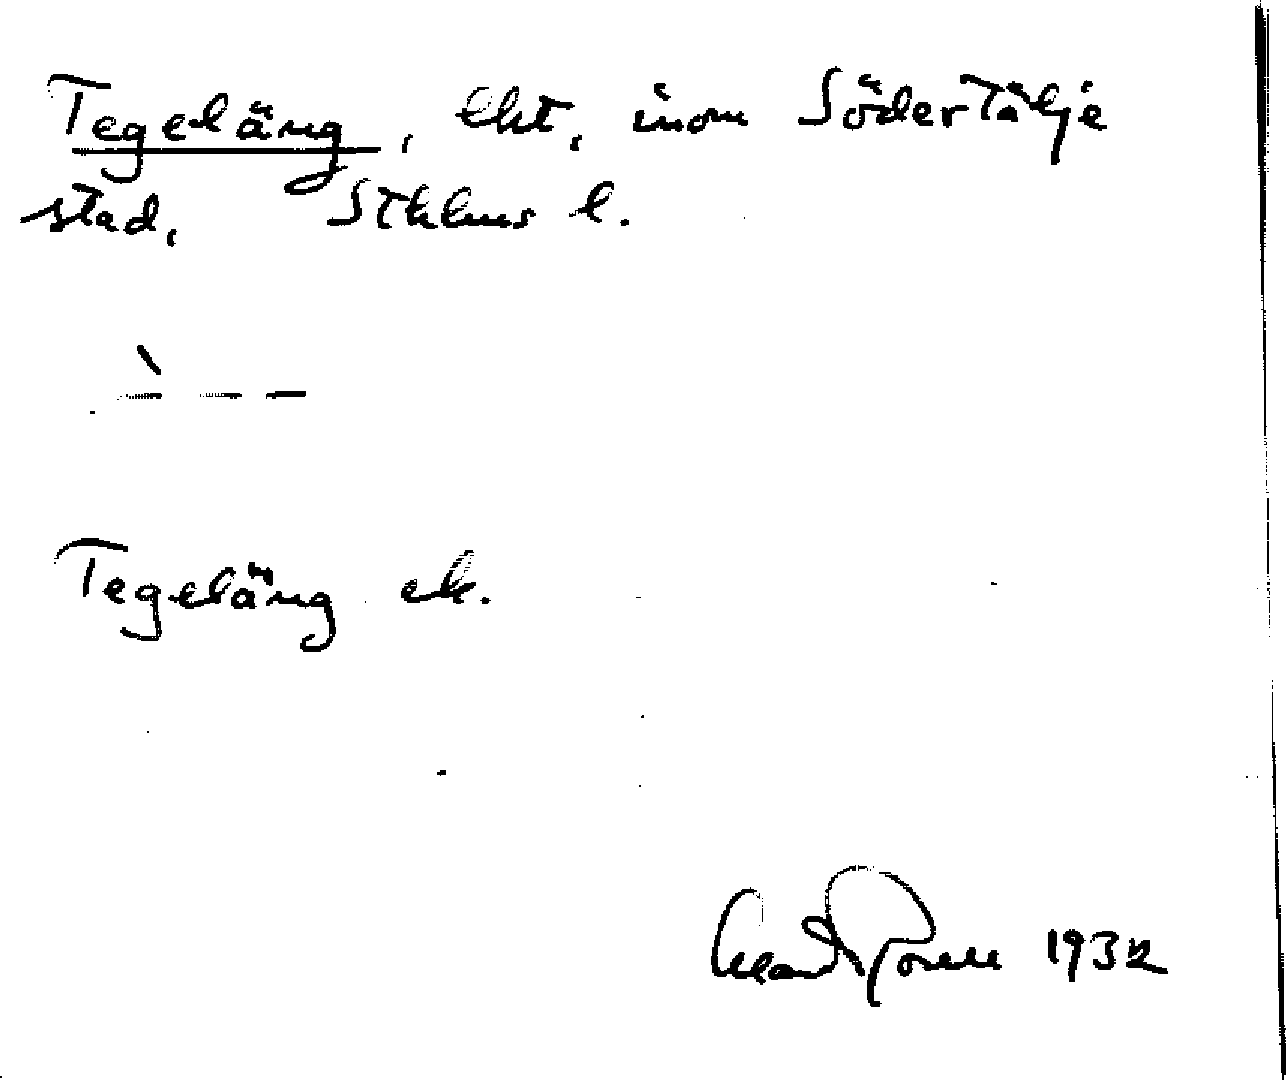 Tegeläng, Ekt. inom Södertälje
stad, Sthlms l.
Tegeläng ek.
1932